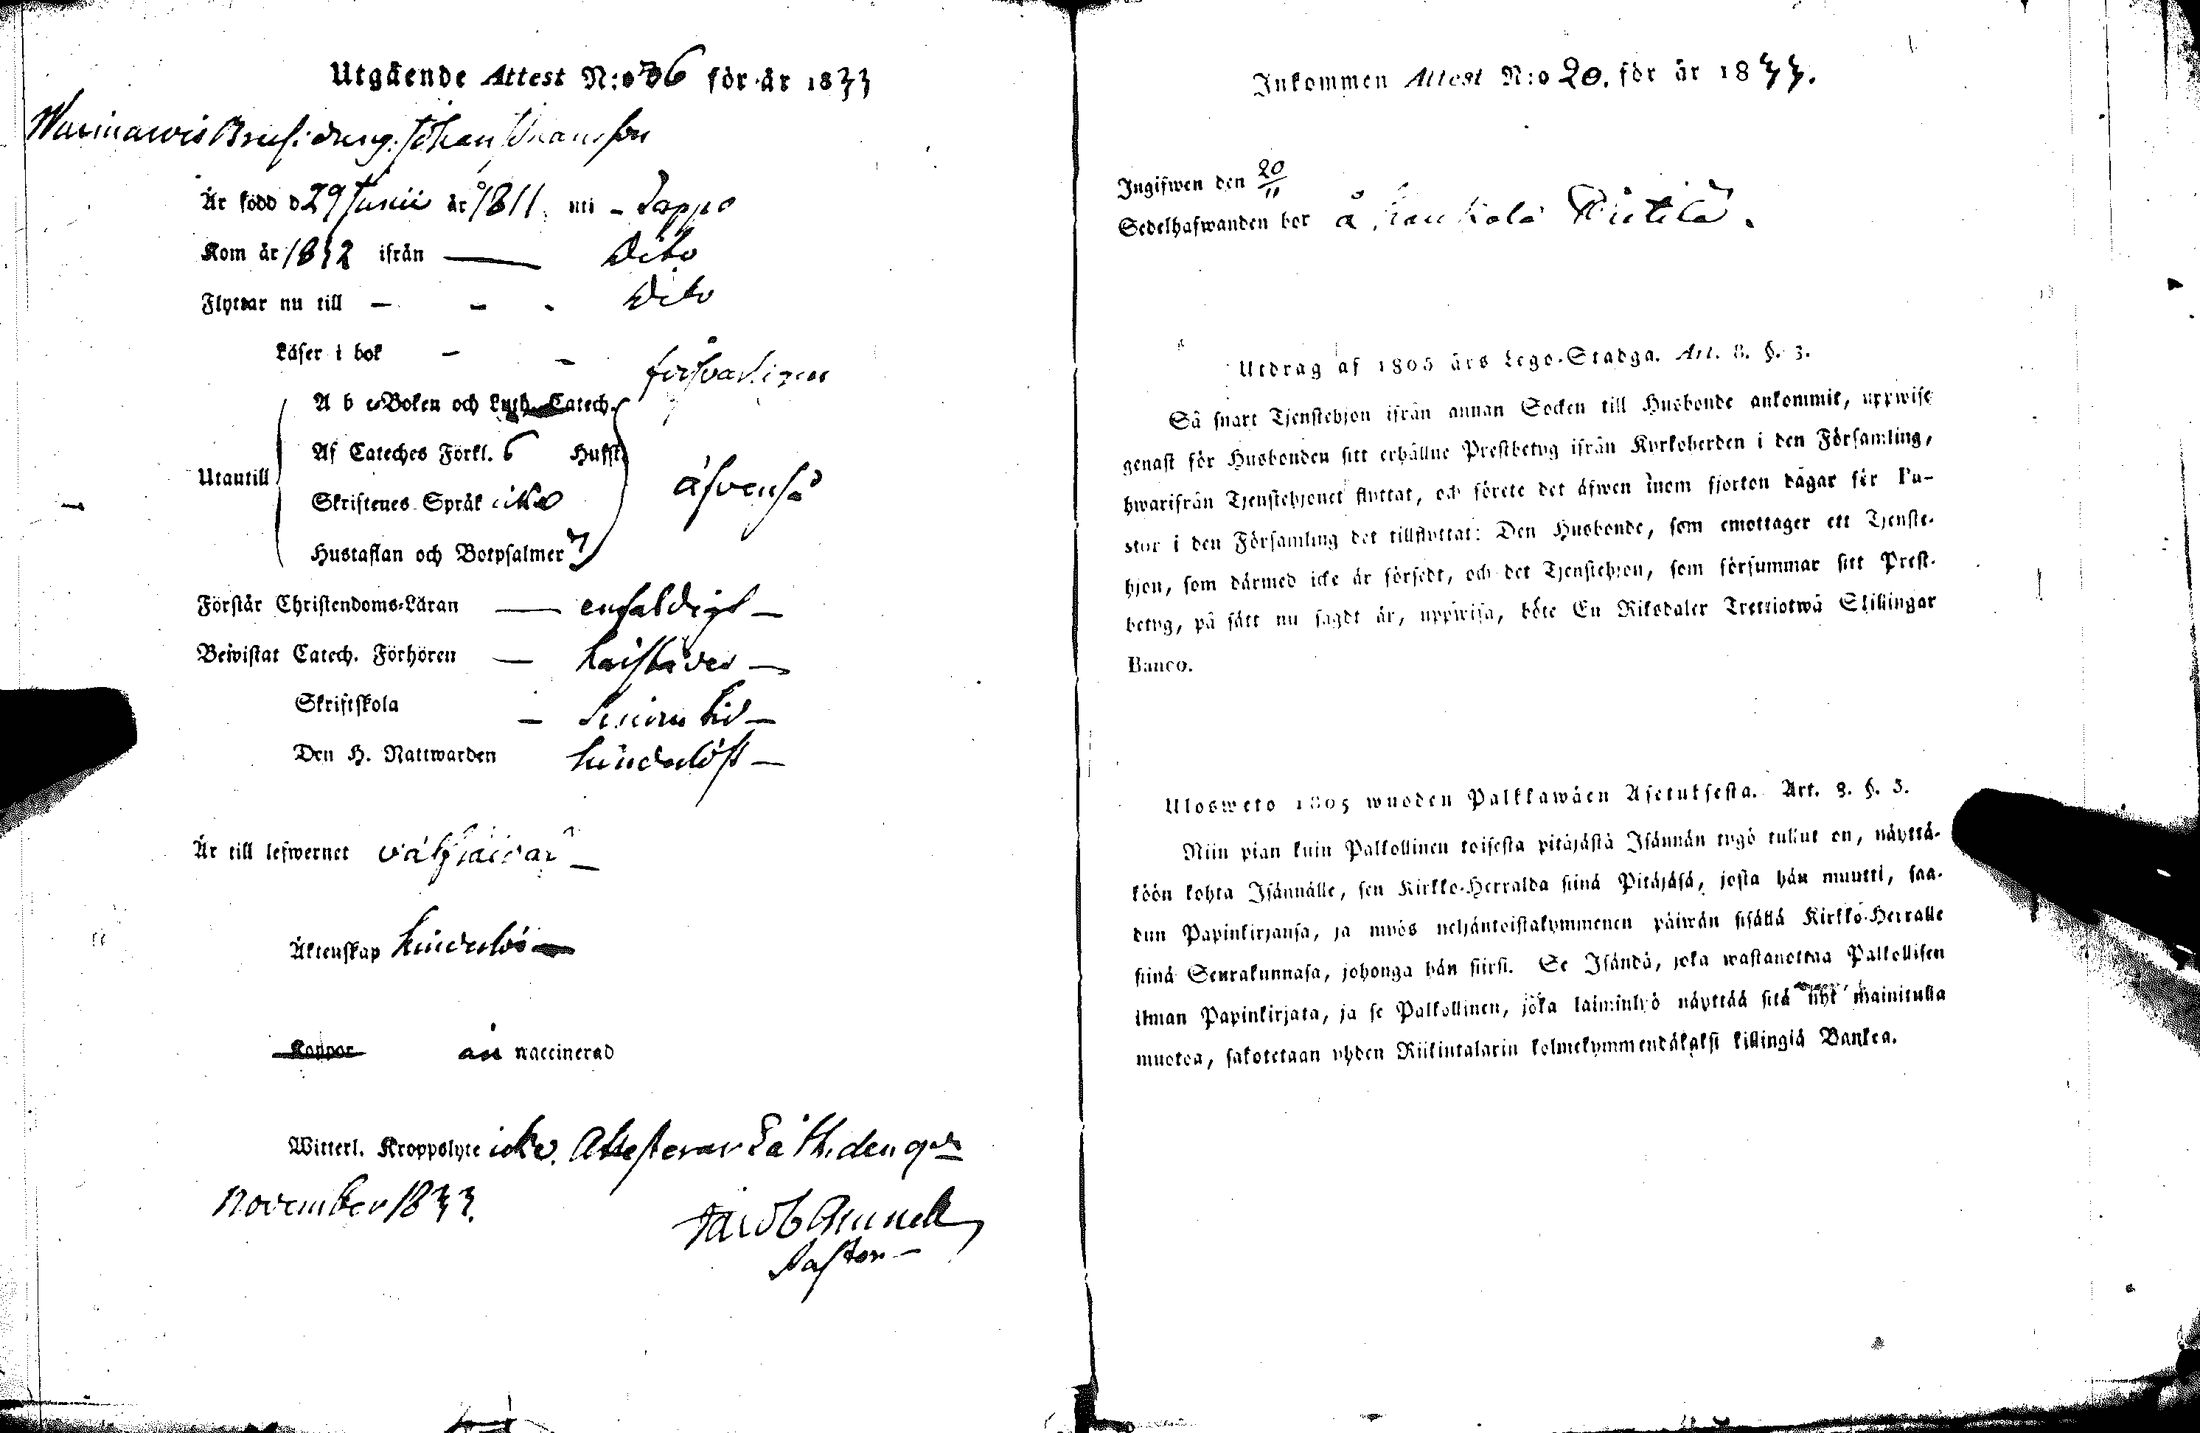 Utgående Attest N:o 36 för år 1833
Johan Johansson
Är född d 29 Junii år 1811. uti – Lappo
Kom år 1832 ifrån — Dito
Flyttar nu till – – - Dito
Läser i bok – – försvarligen
A b c-Boken och Luth. Catech.
Af Cateches Förkl. 6 Hufst.
Utantill
Skriftenes Språk icke
äfvenså
Hustaflan och Botpsalmer 7
Förstår Christendoms-Läran — enfaldigt –
Bewistat Catech. Förhören —
Skriftskola –
Den H. Nattwarden hinderlöst –
Är till lefwernet välfräjdad –
Äktenskap hinderlös
Koppor än vaccinerad
Witterl. Kroppslyte icke. Attesterar den 9de
November 1833.
Jacob
Pastor –
Inkommen Attest N:o 20. för år 1833.
Ingifwen den 20/11
Sedelhafwanden bor å
Utdrag af 1805 års Lego-Stadga. Art. 8. §. 3.
Så snart Tjenstehjon ifrån annan Socken till Husbonde ankommit, uppwise
genast för Husbonden sitt erhållne Prestbetyg ifrån Kyrkoherden i den Församling,
hwarifrån Tjenstehjonet flyttat, och förete det äfwen inom fjorton dagar för Pa-
stor i den Församling det tillflyttat: Den Husbonde, som emottager ett Tjenste-
hjon, som därmed icke är försedt, och det Tjenstehjon, som försummar sitt Prest-
betyg, på sätt nu sagdt är, uppwisa, böte En Riksdaler Trettiotwå Skillingar
Banco.
Ulosweto 1805 wuoden Palkkawäen Asetuksesta. Art. 8. §. 3.
Niin pian kuin Palkollinen toisesta pitäjästä Isännän tygö tullut on, näyttä-
köön kohta Isännälle, sen Kirkko-Herralda siinä Pitäjäsä, josta hän muutti, saa-
dun Papinkirjansa, ja myös neljäntoistakymmenen päiwän sisällä Kirkko-Herralle
siinä Seurakunnasa, johonga hän siirsi. Se Isändä, joka wastanottaa Palkollisen
ilman Papinkirjata, ja se Palkollinen, joka laiminlyö näyttää sitä nyt mainitulla
muotoa, sakotetaan yhden Riikintalarin kolmekymmendäkaksi killingiä Bankea.